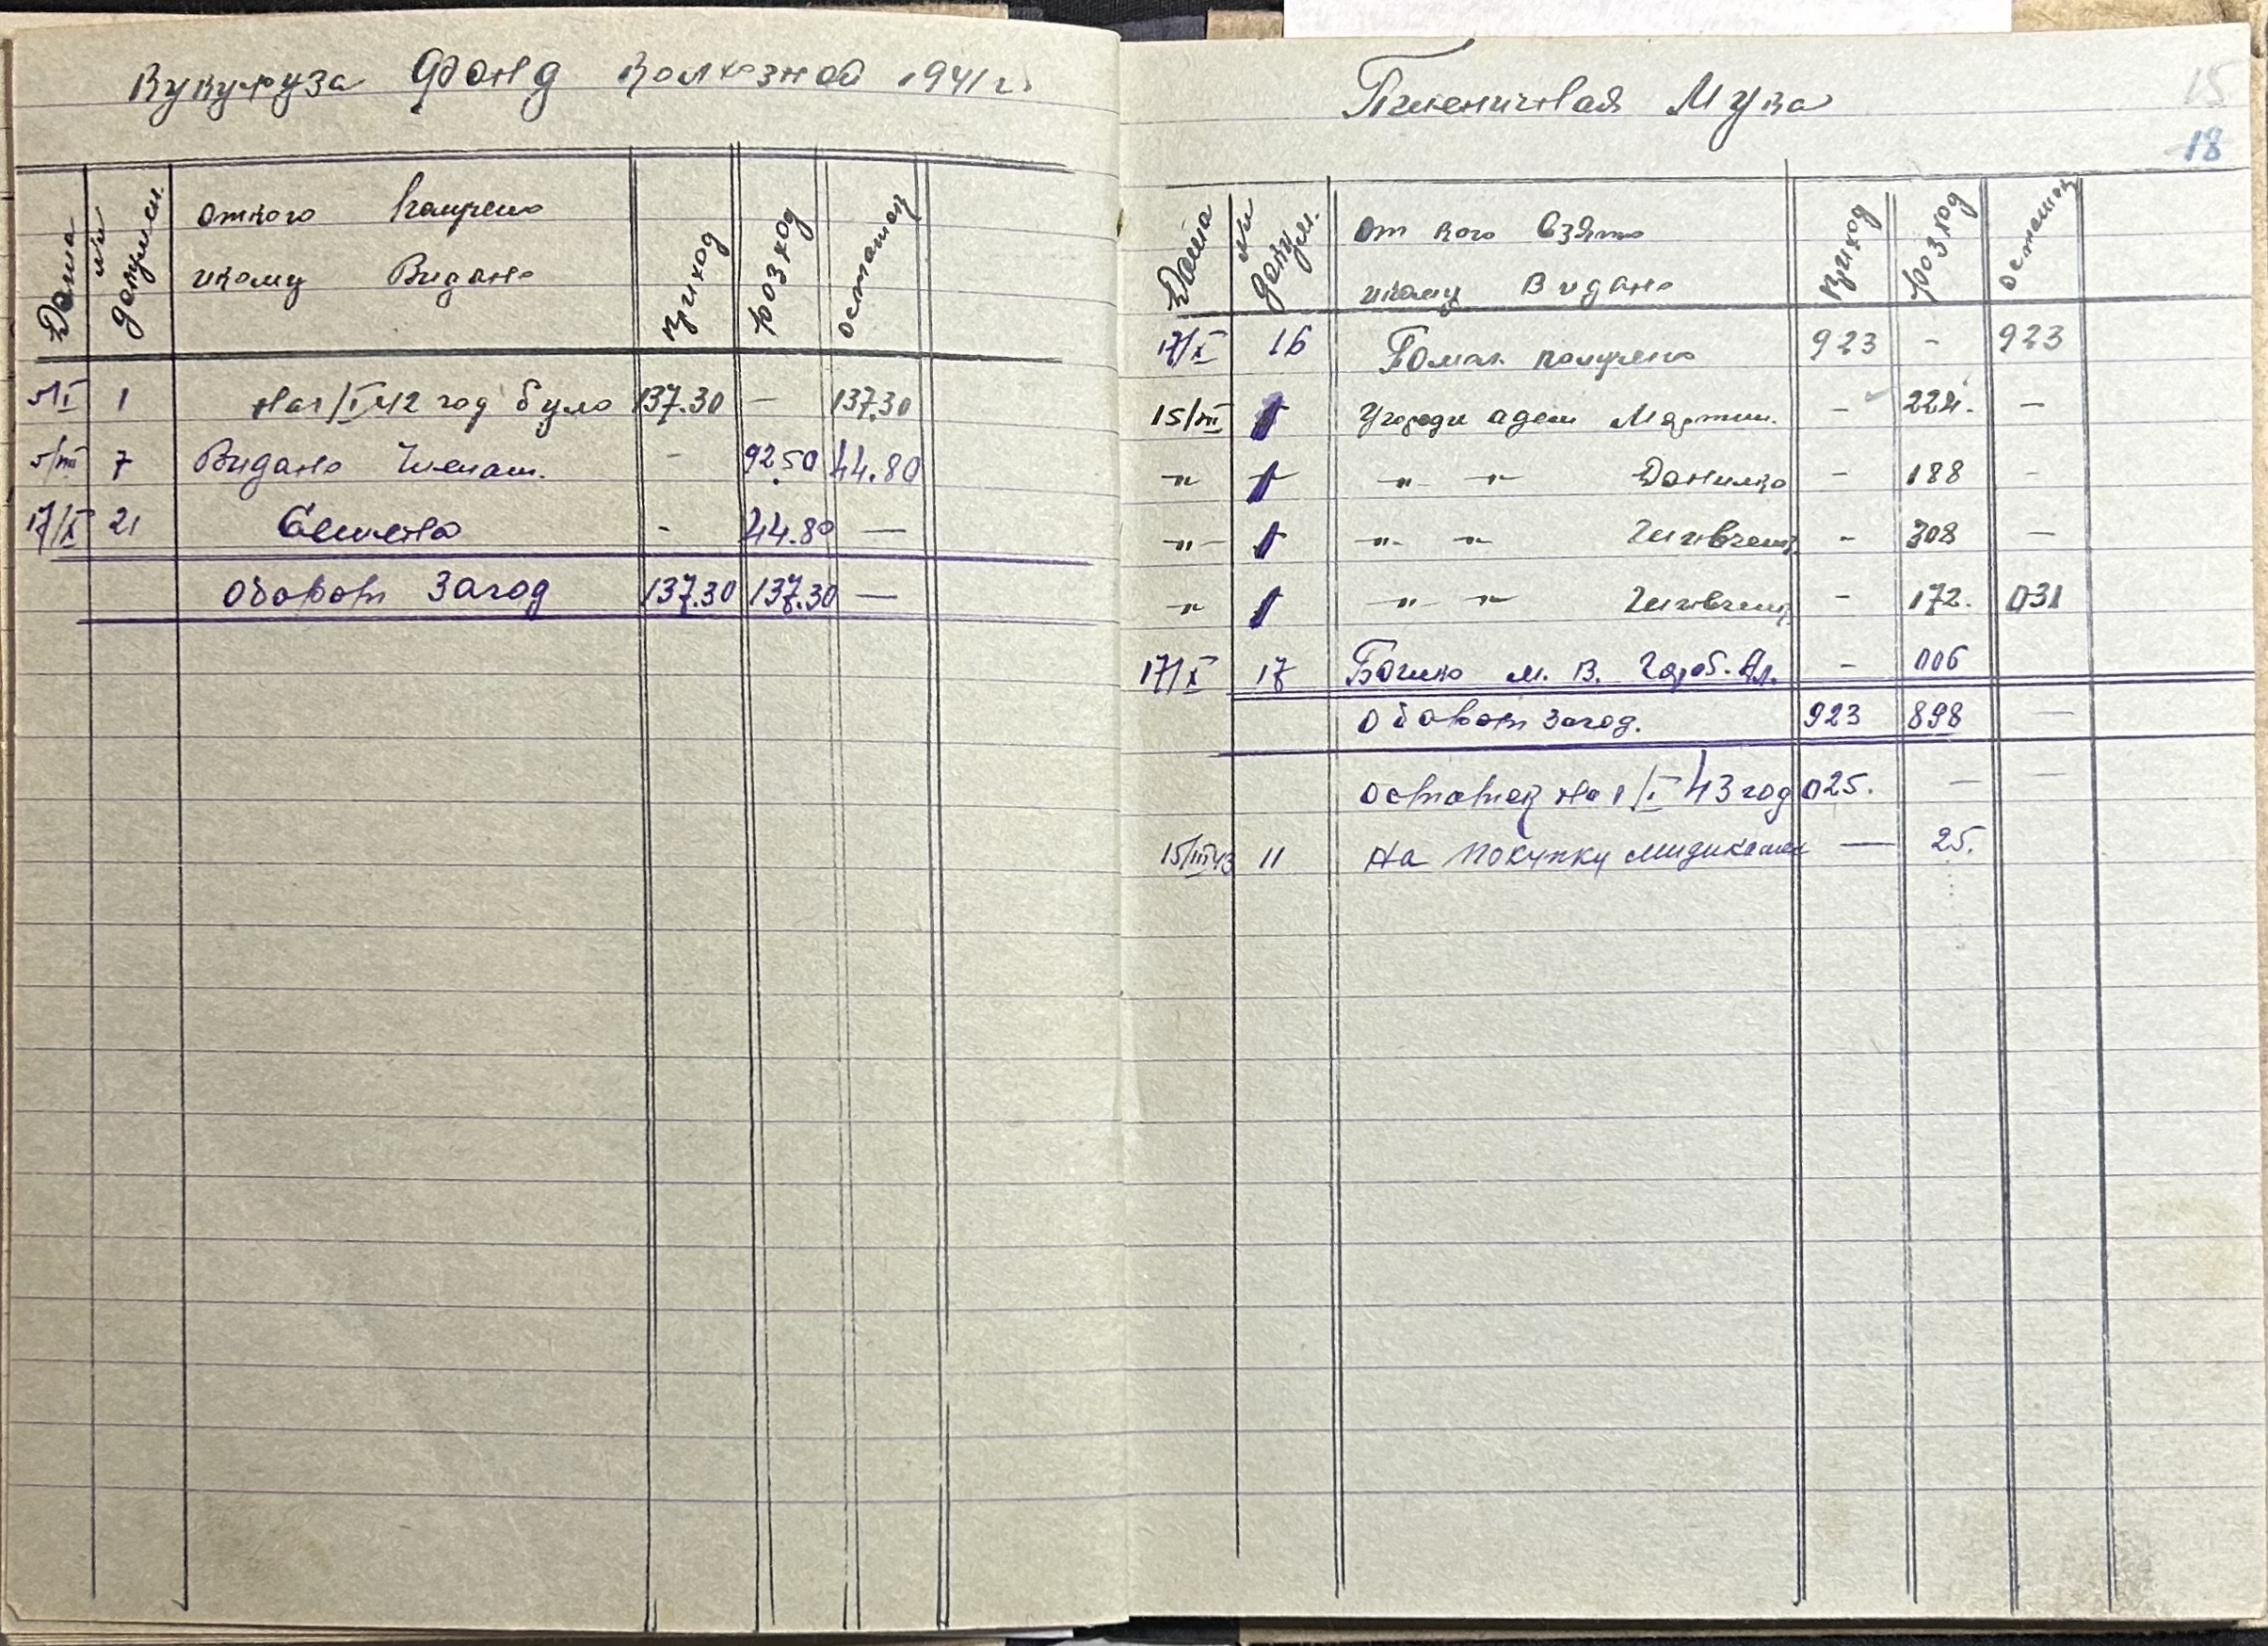 Кукуруза Фонд колхозной 1941 г.
Дата № документ. от кого получено приход розход остаток
и кому Видано
5/I 1 На 1/I 42 год було 137.30 — 137.30
5/III 7 Видано Членам. - 92.50 44.80
17/X 21 Семено - 44.80 —
Оборот За год 137.30 137.30 —
15
18
Пшеничная Мука
Дата № докум. От кого Взято приход розход остаток
и кому Видано
17/X 16 Помол получено 923 - 923
15/III - 224. —
-"- -"- -"- Данилко - 188 -
-"- -"- -"- - 308 —
-"- -"- -"- - 172. 031
17/X 17 М. В. - 006
Оборот За год. 923 898 —
Остаток На 1/I 43 год 025. — —
15/III 43 11 На покупку — 25.